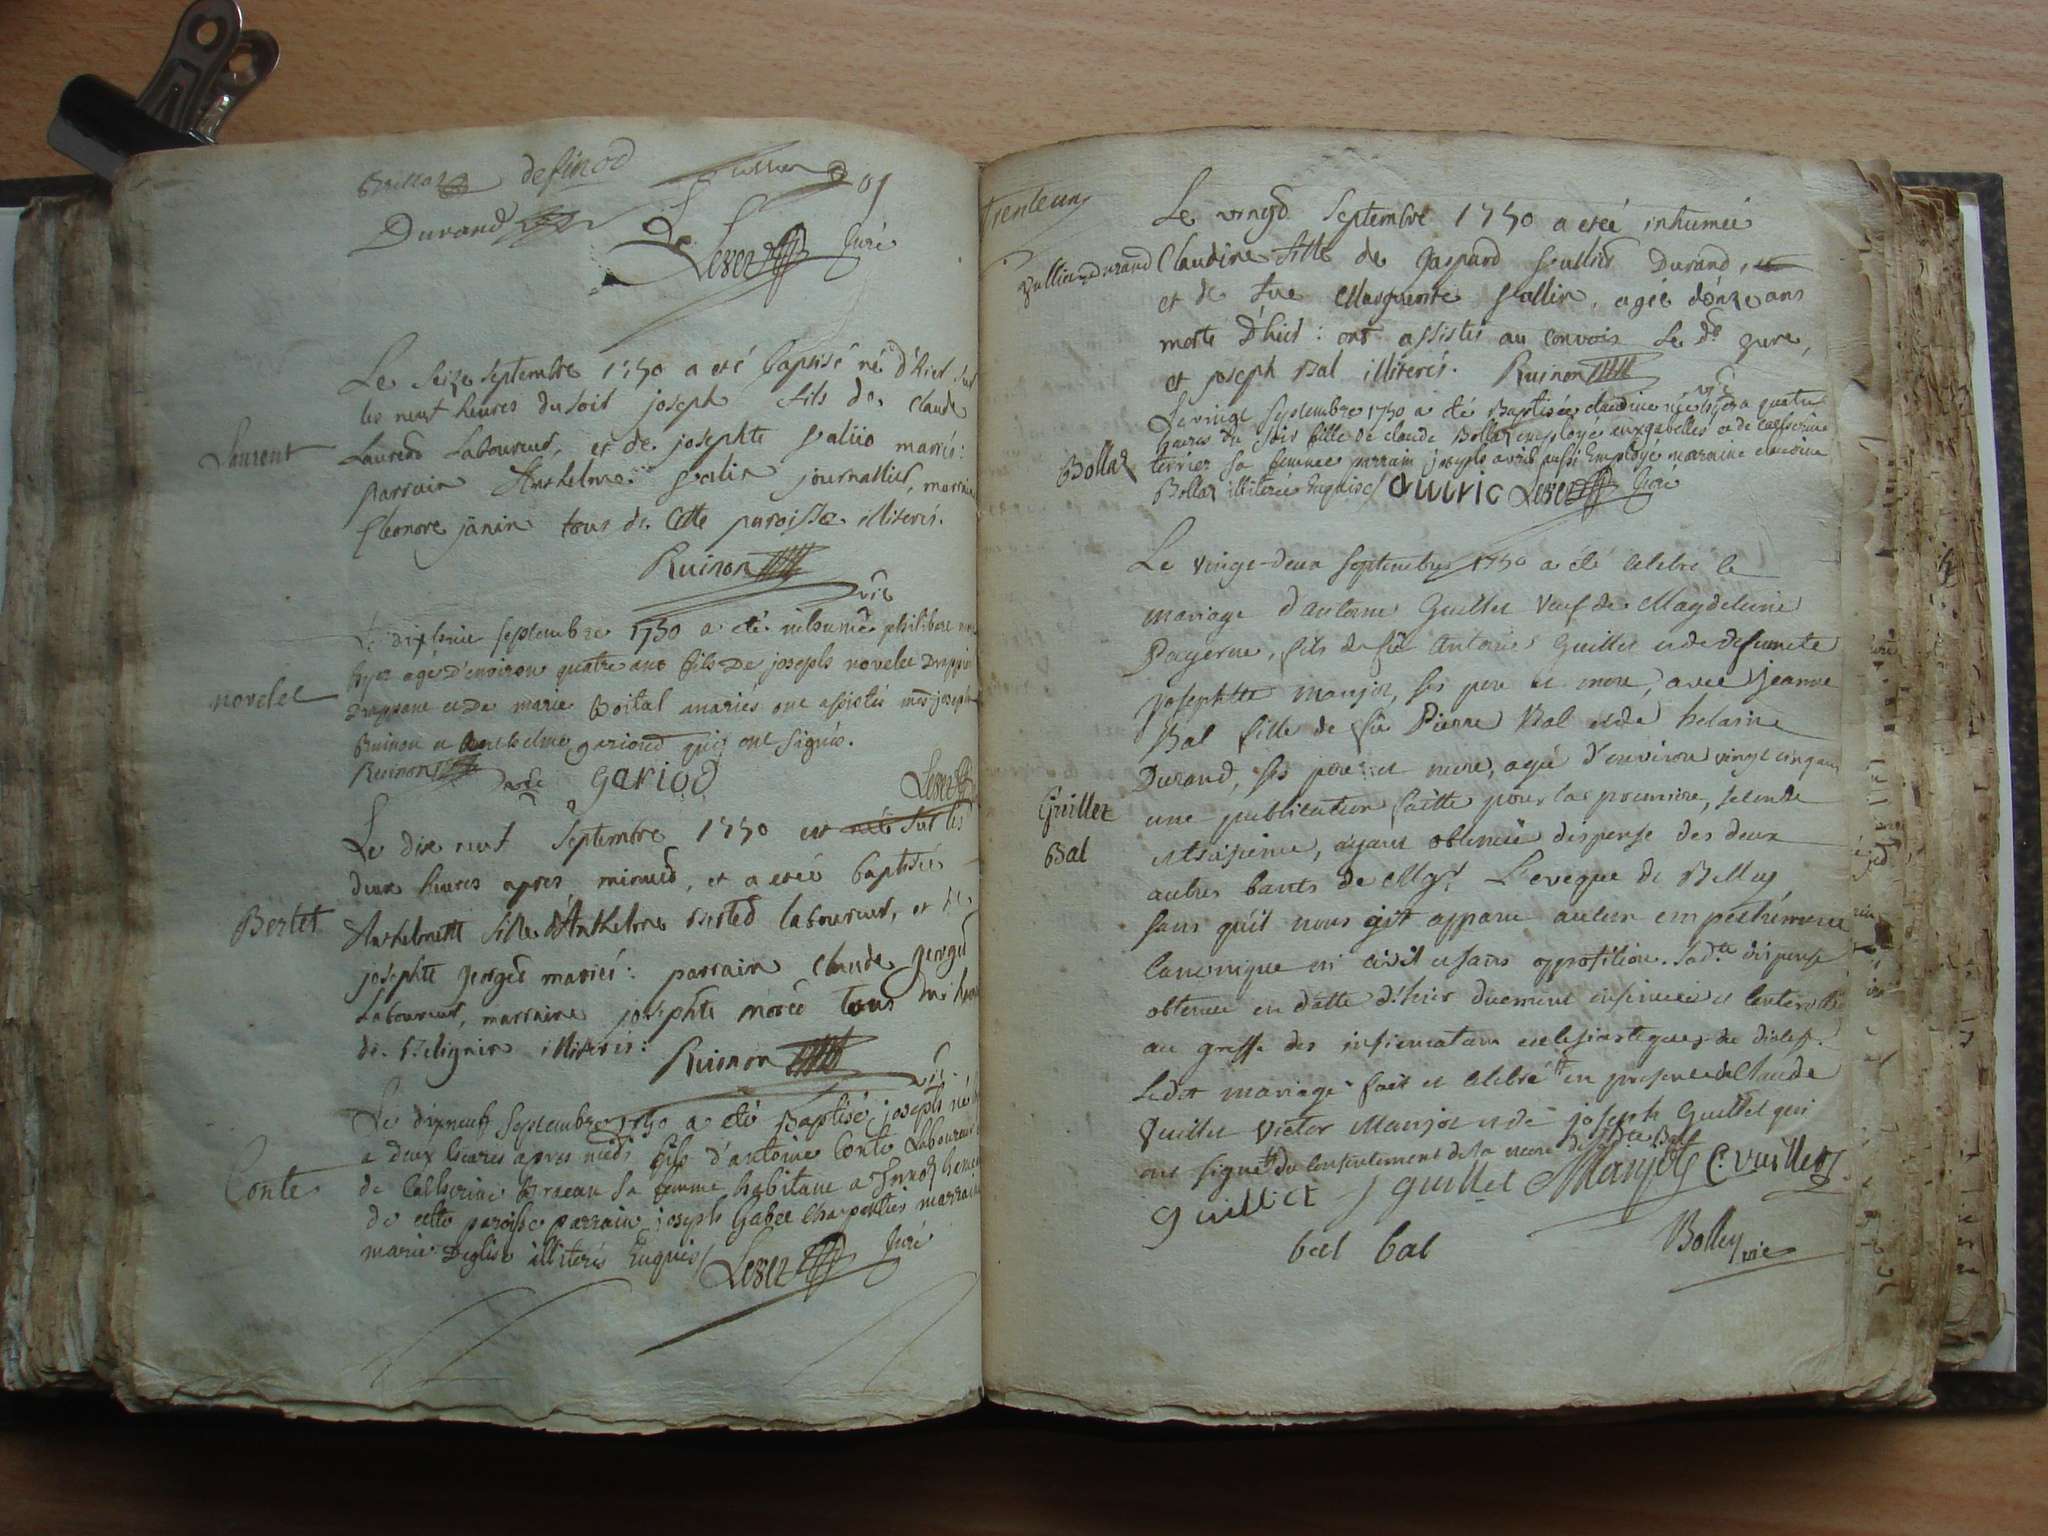 Brillat definod
Durand
Lesez Curé
Laurent
Le seize septembre 1750 a eté baptisé né d'hier sur
les neuf heures du soir joseph fils de Claude
Laurend Laboureur, et de josephte mariés:
parrain Anthelme journallier, marraine
Eleonore janin tous de Cette paroisse illiterés.
Ruinon vic
novelet
Le septembre 1750 a été inhumé philibert
agé d'environ quatre ans fils de joseph novelet
et de marie Boital mariés ont assistés joseph
Ruinon et anthelme gariod qui ont signés.
Ruinon vic gariod Lesez
Berlet
Le dix neuf Septembre 1750 est née sur les
deux heures apres minuid, et a eteé baptisée
Anthelmette fille d'Anthelme laboureur, et de
josephte georges mariés: parrain claude georges
Laboureur, marraine josephte tous
de illiterés: Ruinon vic.
Conte
Le dixneuf septembre 1750 a été Baptisé joseph né
a deux heures apres midi fils d'antoine Conte Laboureur
de Catherine sa femme habitant a
de cette paroisse parrain joseph Gabet Charpentier marraine
marie illiterés Enquis Lesez Curé
trente un
Vullien durand
Le vingd Septembre 1750 a eteé inhumée
Claudine fille de gaspard Durand,
et de fue Marguerite Vallin, agée d'onze ans
morte d'hier: ont assistés au convois Le dt pere,
et joseph Bal illiterés. Ruinon vic
Bollaz
Le vingt septembre 1750 a été Baptisée claudine née a quatre
heures du soir fille de claude Bollaz employé aux gabelles et de catherine
terrier sa femme parrain joseph aussi Employé marraine claudine
Bollaz illiterée Enquise Lesez Curé
Guillet
Bal
Le vingt-deux septembre 1750 a été celebré le
mariage d'antoine Guillet veuf de Magdeleine
Pagerne, fils de fû antoine Guillet et de defuncte
josephtte manjoz, ses pere et mere, avec jeanne
Bal fille de fû Pierre Bal et de helaine
Durand, ses pere et mere, agé d'environ vingt cinq ans
une publication faitte pour la premiere, seconde
et troisieme, ayant obtenüe dispense des deux
autres bancs de Mgr. L'eveque de Belley,
sans qu'il nous ait apparu aucun empeschement
canonique ni civil et sans opposition. Lad.te dispense
obtenue en datte d'hier duement insinuée et controllée
au greffe des insinuations eclesiastiques du diocese.
Ledit mariage fait et celebré en presence de Claude
Vuillet Victor Manjoz et de joseph Guillet qui
ont signé du consentement de la mere de lad.te Bal
guillet J guillet Manjot C. vuillet
bal bal Bolley vic